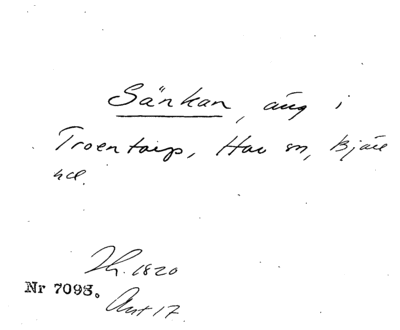 Sänkan, äng i
Troentorp, Hov sn, Bjäre
hd.
Th. 1820
Nr 7093.
Ant 17